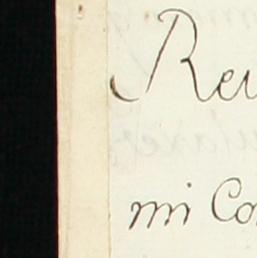 Rev
mi Co